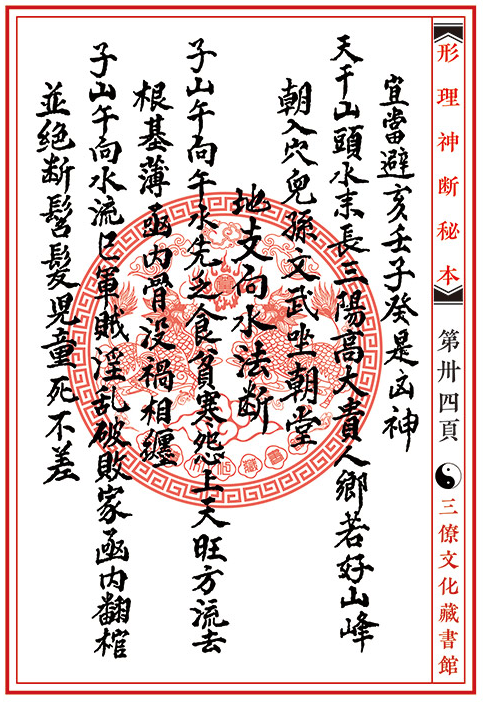 形理神断秘本
第卅四頁
三僚文化藏書館
宜當避亥壬子癸是凶神
天干山頭水来長三陽高大貴人鄉若好山峰
朝入穴兒孫文武坐朝堂
地支向水法断
子山午向午水先乏食貧寒怨上天旺方流去
根基薄凾内骨没禍相纏
子山午向水流巳軍賊淫乱破敗家凾内翻棺
並绝断髫髮児童死不差